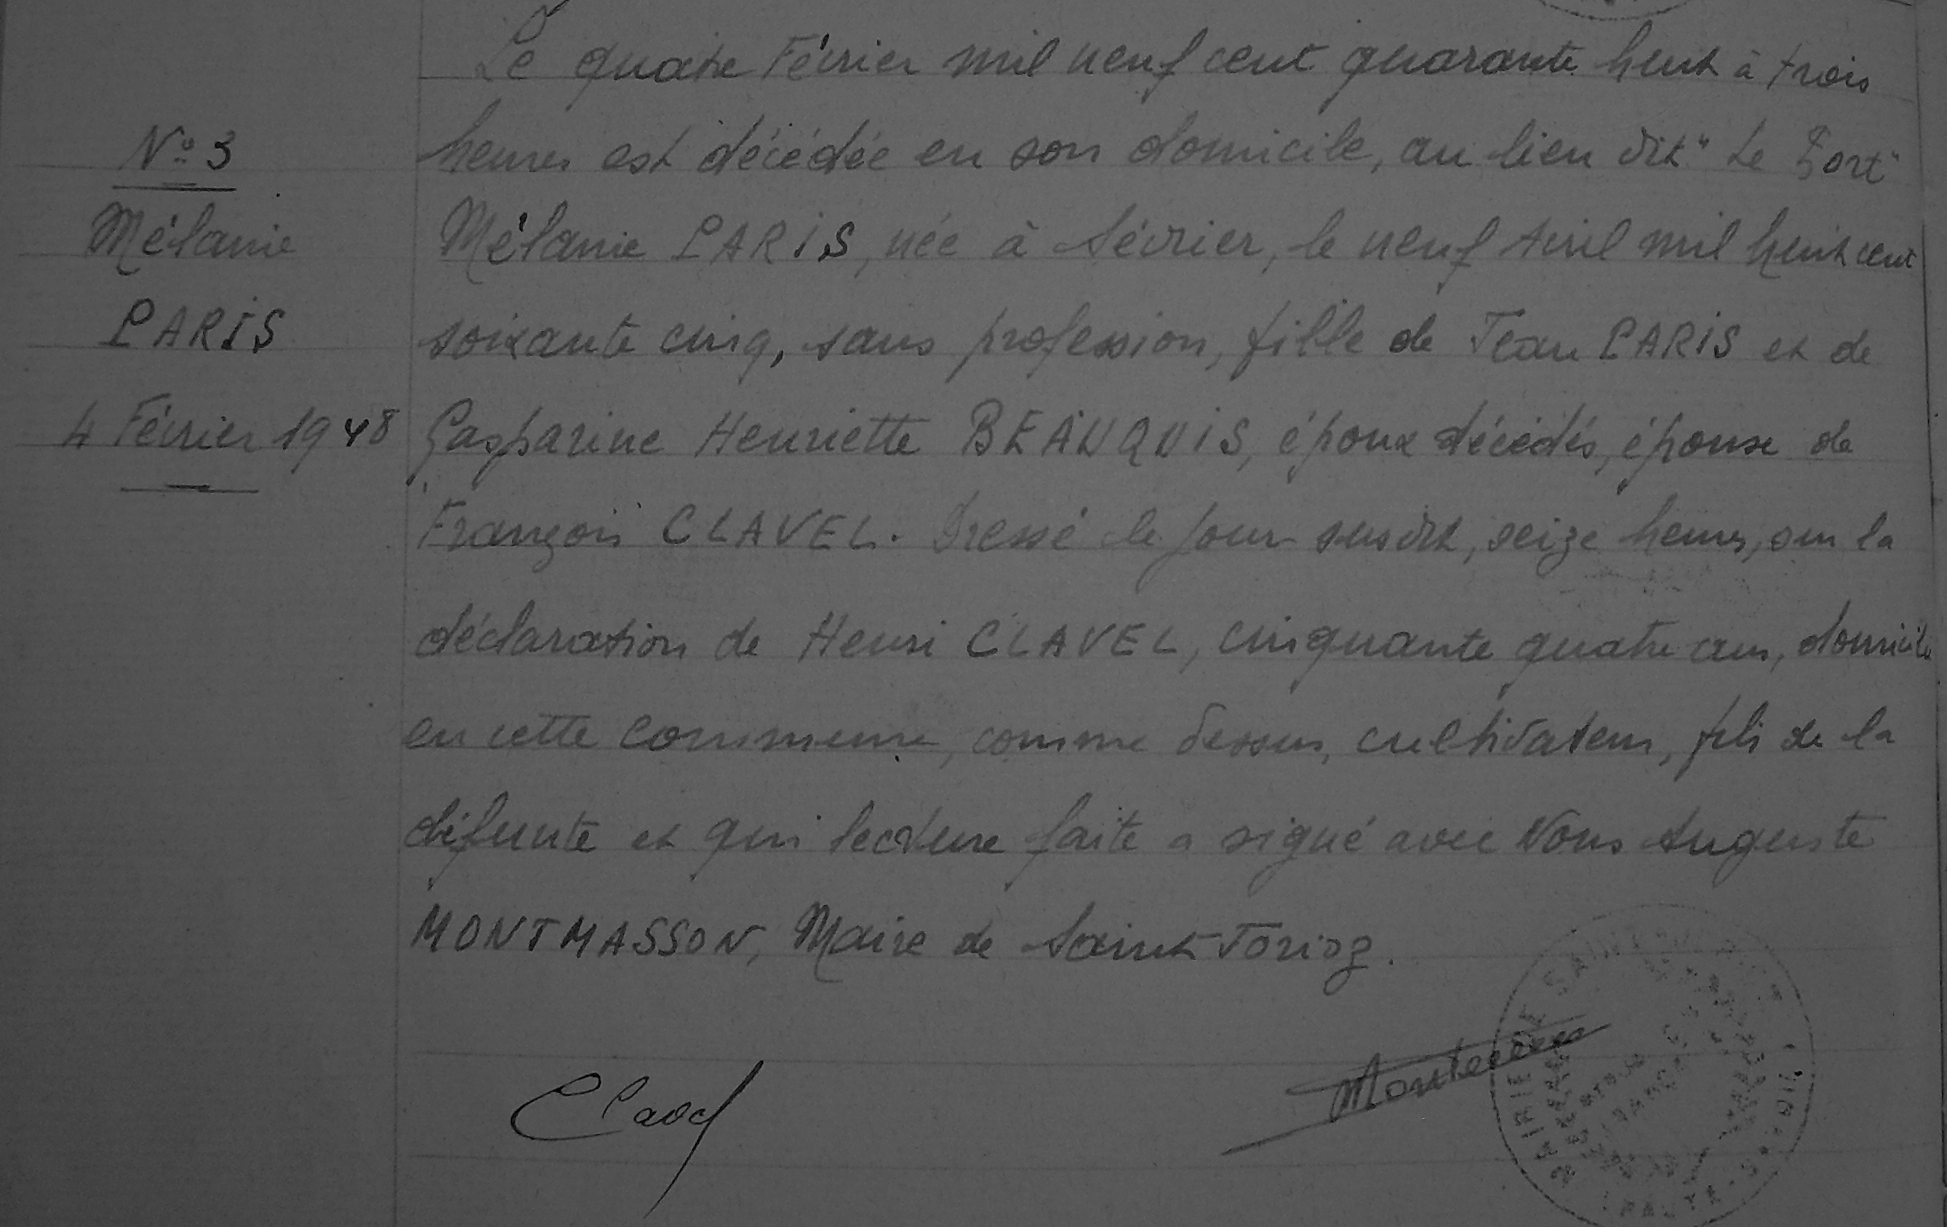 Le quatre Février mil neuf cent quarante huit à trois
N° 3
heures est décédée en son domicile, au lieu dit " Le Port "
Mélanie
Mélanie PARIS, née à Sévrier, le neuf Avril mil huit cent
PARIS
soixante cinq, sans profession, fille de Jean PARIS et de
4 Février 1948
Gasparine Henriette BEAUQUIS, époux décédés, épouse de
François CLAVEL. Dressé le jour susdit, seize heures, sur la
déclaration de Henri CLAVEL, cinquante quatre ans, domicilié
en cette commune, comme dessus, cultivateur, fils de la
défunte et qui lecture faite a signé avec Nous Auguste
MONTMASSON, Maire de Saint-Jorioz.
Clavel
MAIRIE DE SAINT